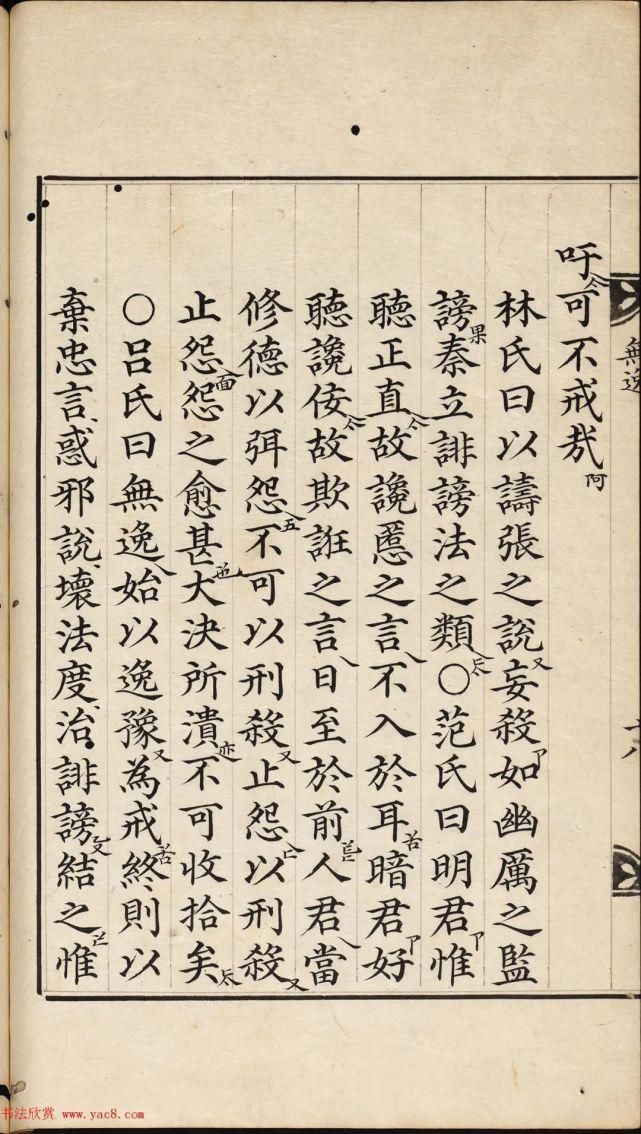 吁可不戒㢤
林氏曰以譸張之說妄殺如幽厲之監
謗秦立誹謗法之類○范氏曰明君惟
聽正直故讒慝之言不入於耳暗君好
聽讒佞故欺誑之言日至於前人君當
修德以弭怨不可以刑殺止怨以刑殺
止怨怨之愈甚大決所潰不可收拾矣
○呂氏曰無逸始以逸豫為戒終則以
棄忠言惑邪說壞法度治誹謗結之惟
無逸
十八
书法欣赏 www.yac8.com